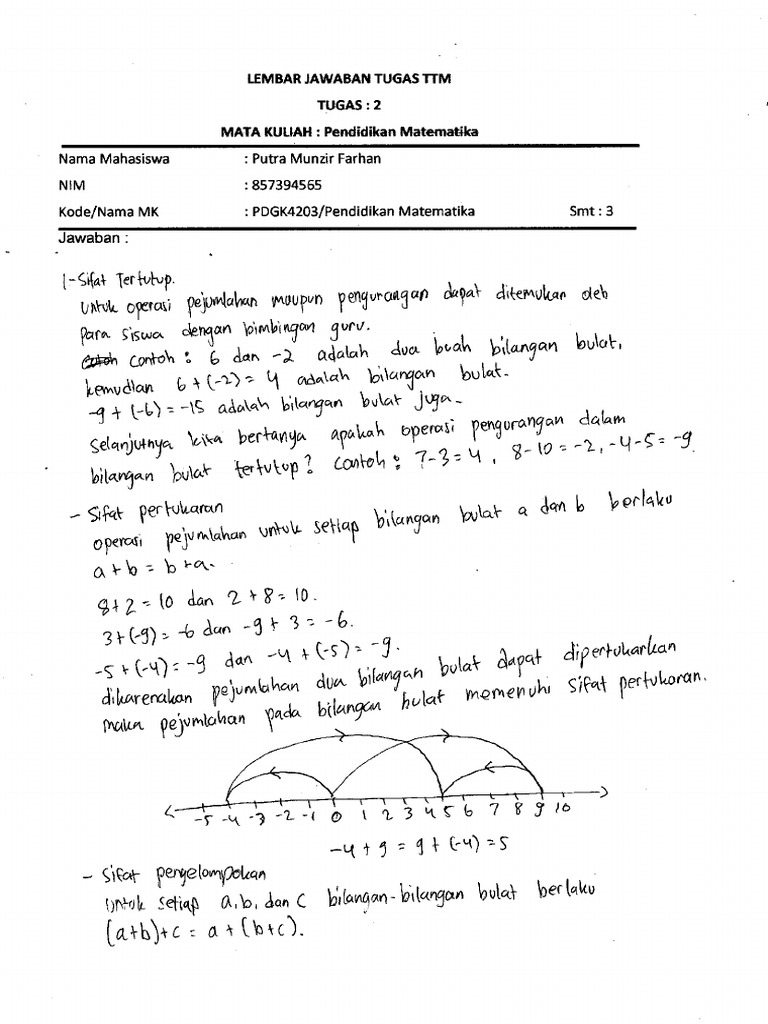 LEMBAR JAWABAN TUGAS TTM
TUGAS : 2
MATA KULIAH : Pendidikan Matematika
Nama Mahasiswa : Putra Munzir Farhan
NIM : 857394565
Kode/Nama MK : PDGK4203/Pendidikan Matematika Smt : 3
Jawaban :
1-Sifat Tertutup.
Untuk operasi pejumlahan maupun pengurangan dapat ditemukan oleh
para siswa dengan bimbingan guru.
contoh : 6 dan -2 adalah dua buah bilangan bulat,
kemudian 6 + (-2) = 4 adalah bilangan bulat.
-9 + (-6) = -15 adalah bilangan bulat juga.
Selanjutnya kita bertanya apakah operasi pengurangan dalam
bilangan bulat tertutup? Contoh : 7-3 = 4, 8-10 = -2, -4-5 = -9
- Sifat pertukaran
operasi pejumlahan untuk setiap bilangan bulat a dan b berlaku
a + b = b + a.
8+2 = 10 dan 2 + 8 = 10.
3+(-9) = -6 dan -9 + 3 = -6.
-5 + (-4) = -9 dan -4 + (-5) = -9.
dikarenakan pejumlahan dua bilangan bulat dapat dipertukarkan
maka pejumlahan pada bilangan bulat memenuhi sifat pertukaran.
-5 -4 -3 -2 -1 0 1 2 3 4 5 6 7 8 9 10
-4 + 9 = 9 + (-4) = 5
- Sifat pengelompokan
Untuk setiap a, b, dan c bilangan-bilangan bulat berlaku
(a+b)+c = a + (b+c).